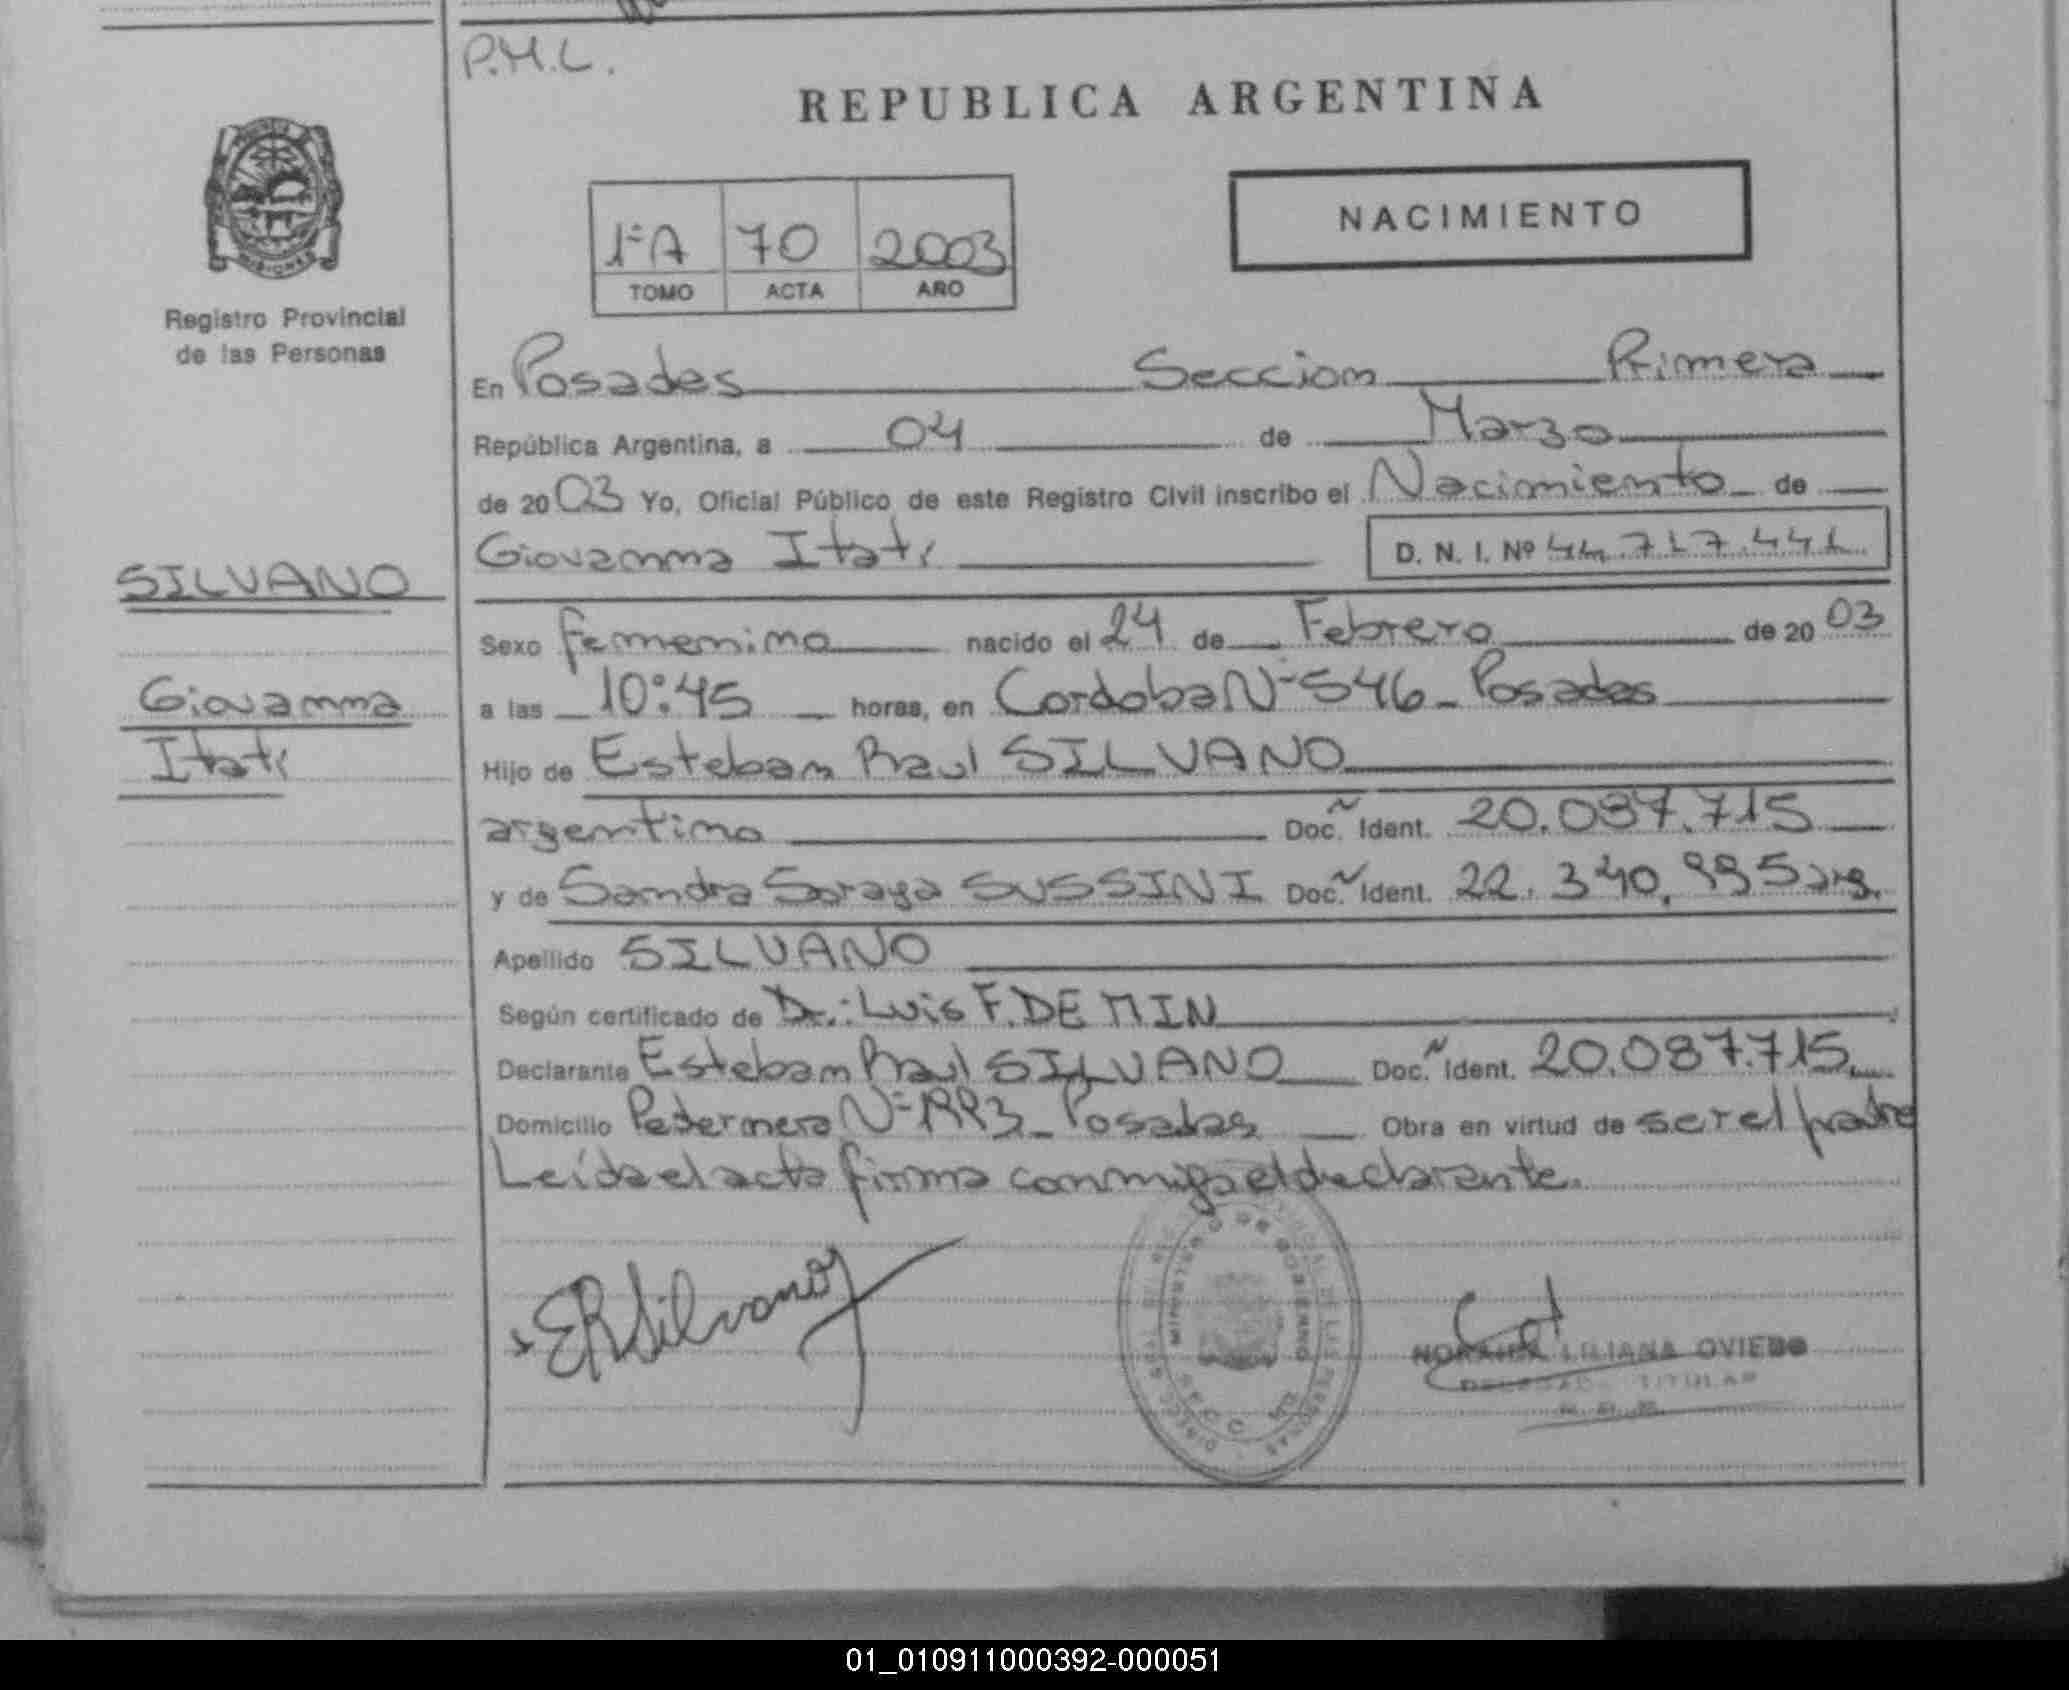 P.M.L.
REPUBLICA ARGENTINA
NACIMIENTO
1ºA 70 2003
TOMO ACTA AÑO
MISIONES
Registro Provincial
de las Personas
En Posadas Seccion Primera
República Argentina, a 04 de Marzo
de 2003 Yo, Oficial Público de este Registro Civil inscribo el Nacimiento de
Giovanna Itatí D. N. I. Nº 44.717.441
SILVANO
Giovanna
Itatí
Sexo femenino nacido el 24 de Febrero de 2003
a las 10:45 horas, en Cordoba Nº 546 - Posadas
Hijo de Esteban Raul SILVANO
argentino Doc. Ident. 20.087.715
y de Sandra Soraya SUSSINI Doc. Ident. 22.340.995 arg.
Apellido SILVANO
Según certificado de Dr.: Luis F. DE MIN
Declarante Esteban Raul SILVANO Doc. Ident. 20.087.715
Domicilio Pedernera Nº 1993 - Posadas Obra en virtud de ser el padre
Leída el acta firma conmigo el declarante.
ERSilvano
MINISTERIO DE GOBIERNO
LILIANA OVIEDO
TITULAR
01_010911000392-000051